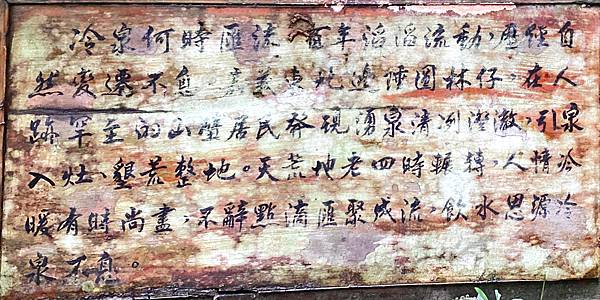 冷泉何時匯流，百年滔滔流動，歷經自
然變遷不息。嘉義東北邊陲圓林仔，在人
跡罕至的山巒居民發現湧泉清冽澄澈，引泉
入灶、墾荒整地。天荒地老四時輾轉，人情冷
暖有時尚盡，不辭點滴匯聚成流，飲水思源冷
泉不息。